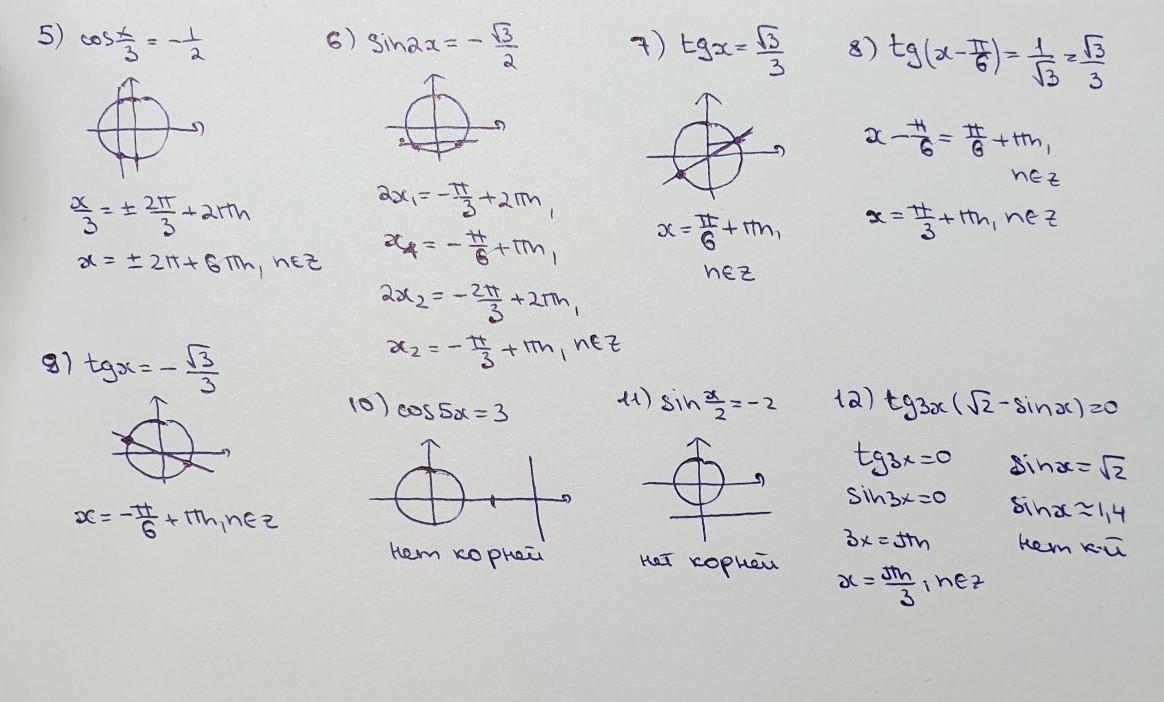 5) cos x/3 = -1/2
x/3 = ± 2π/3 + 2πn
x = ± 2π + 6πn, n∈Z
6) sin2x = - √3/2
2x₁ = -π/3 + 2πn,
x₁ = -π/6 + πn,
2x₂ = -2π/3 + 2πn,
x₂ = -π/3 + πn, n∈Z
7) tgx = √3/3
x = π/6 + πn,
n∈Z
8) tg(x - π/6) = 1/√3 = √3/3
x - π/6 = π/6 + πn,
n∈Z
x = π/3 + πn, n∈Z
9) tgx = - √3/3
x = -π/6 + πn, n∈Z
10) cos5x = 3
нет корней
11) sin x/2 = -2
нет корней
12) tg3x(√2 - sinx) = 0
tg3x = 0
sin3x = 0
3x = πn
x = πn/3, n∈Z
sinx = √2
sinx ≈ 1,4
нет к-й